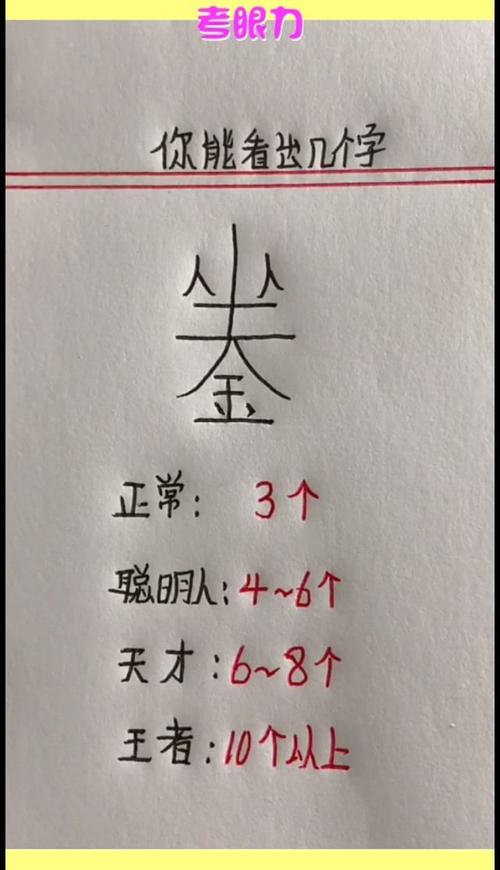 考眼力
你能看出几个字
正常： 3个
聪明人：4~6个
天才：6~8个
王者：10个以上